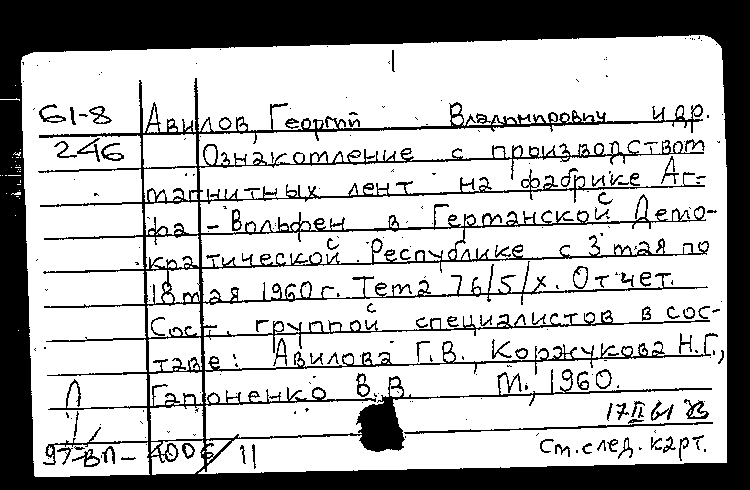 61-8 Авилов, Георгий Владимирович и др.
246 Ознакомление с производством
магнитных лент на фабрике Аг-
фа-Вольфен в Германской Демо-
кратической Республике с 3 мая по
18 мая 1960 г. Тема 76/5/х. Отчет.
Сост. группой специалистов в сос-
таве: Авилова Г.В., Коржукова Н.Г.,
Гапоненко В.В. М., 1960.
17 II 61
97-ВП-4006/11 См. след. карт.